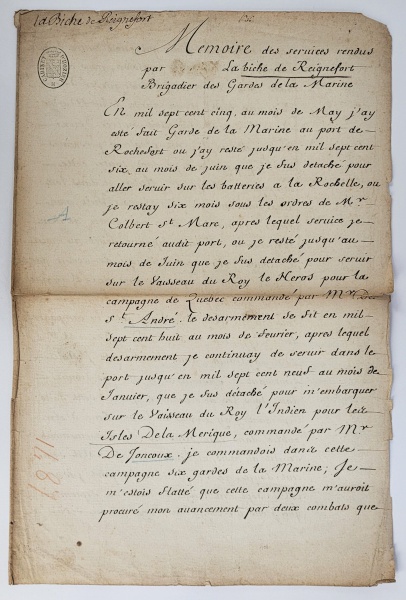 La Biche de Reignefort
Memoire des services rendus
par La biche de Reignefort
Brigadier des Gardes de la Marine
En mil sept cent cinq, au mois de May j'ay
esté fait Garde de la Marine au port de
Rochefort ou j'ay resté jusqu'en mil sept cent
six au mois de juin que je fus detaché pour
aller servir sur les batteries a la Rochelle, ou
je restay six mois sous les ordres de Mr
Colbert St Marc, apres lequel service je
retourné audit port, ou je resté jusqu'au
mois de Juin que je fus detaché pour servir
sur le Vaisseau du Roy le Heros pour la
campagne de Quebec commandé par Mr De
St André. le desarmement se fit en mil
sept cent huit au mois de fevrier, apres lequel
desarmement je continuay de servir dans le
port jusqu'en mil sept cent neuf au mois de
Janvier, que je fus détaché pour m'embarquer
sur le Vaisseau du Roy l'Indien pour les
Isles De la Merique, commandé par Mr
De Joncoux. je commandois dans cette
campagne six gardes de la Marine; Je
m'estois flatté que cette campagne m'auroit
procuré mon avancement par deux combats que
A